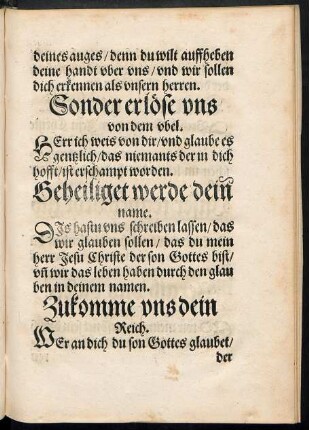 deines auges/denn du wilt auffheben
deine handt vber vns/vnd wir sollen
dich erkennen als vnsern herren.
Sonder erlöse vns
von dem vbel.
HErr ich weis von dir/vnd glaube es
gentzlich/das niemants der in dich
hofft/ist erschampt worden.
Geheiliget werde dein
name.
DIs hastu vns schreiben lassen/das
wir glauben sollen/das du mein
herr Jesu Christe der son Gottes bist/
vñ wir das leben haben durch den glau
ben in deinem namen.
Zukomme vns dein
Reich.
WEr an dich du son Gottes glaubet/
der